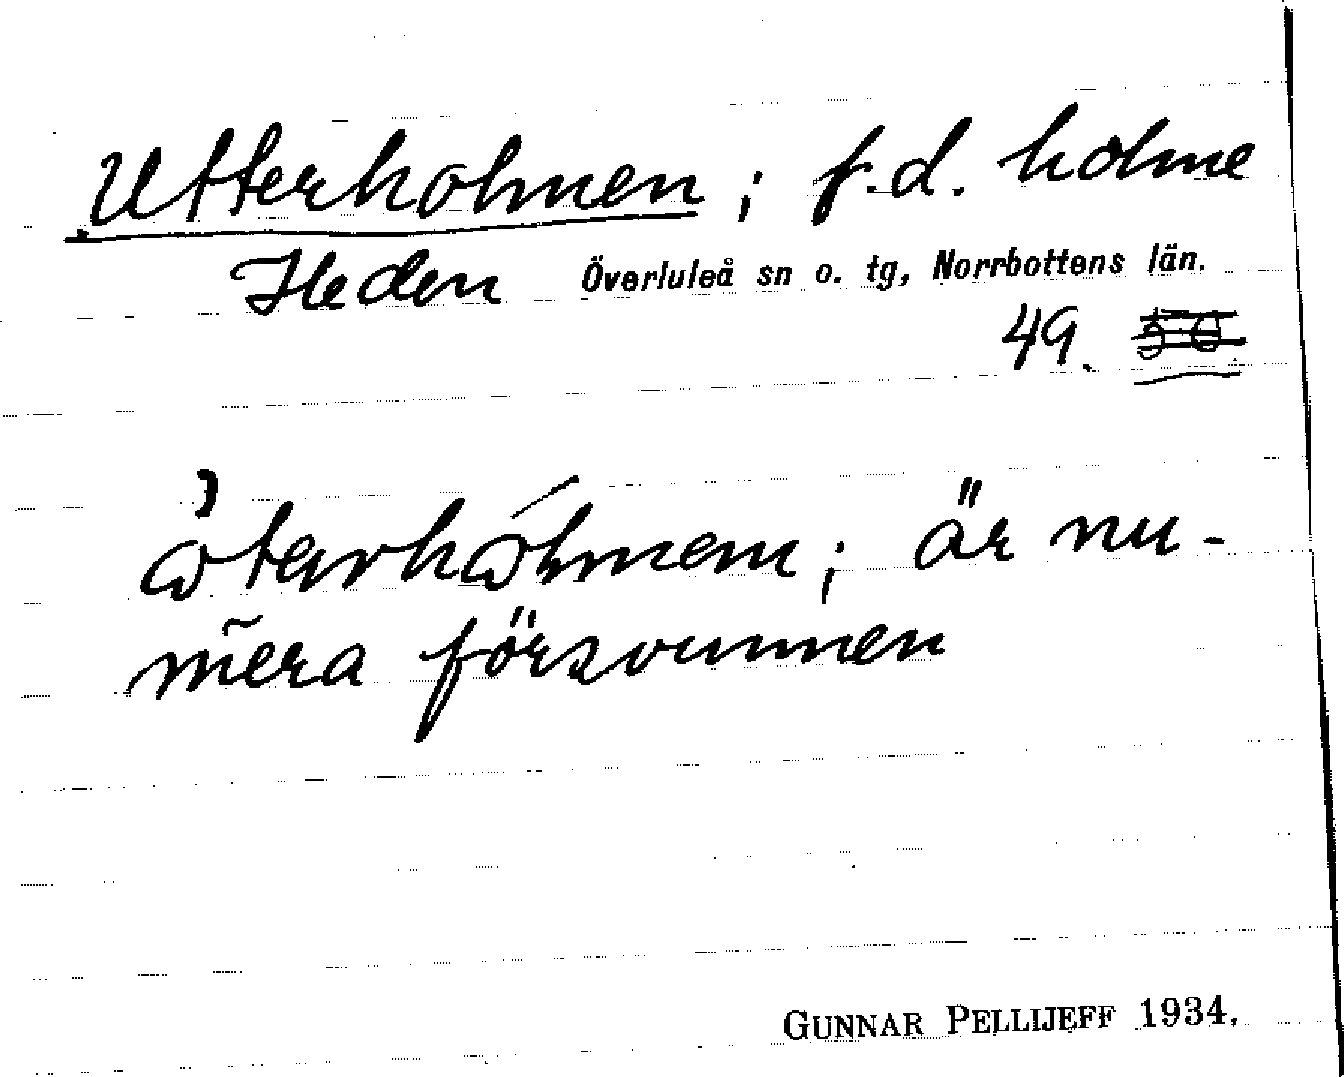 Utterholmen; f.d. holme
Heden Överluleå sn o. tg, Norrbottens län.
49. 50
är nu-
mera försvunnen
GUNNAR PELLIJEFF 1934.